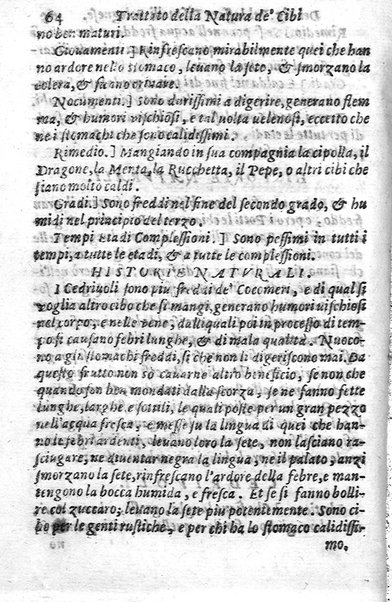 64 Trattato della Natura de' Cibi
no ben maturi.
Giouamenti.] Rinfrescano mirabilmente quei che han
no ardore nello stomaco, leuano la sete, & smorzano la
colera, & fano orinare.
Nocumenti.] Sono durissimi a digerire, generano flem
ma, & humori vischiosi, e tal volta uelenosi, eccetto che
ne i stomachi che sono calidissimi.
Rimedio.] Mangiando in sua compagnia la cipolla, il
Dragone, la Menta, la Rucchetta, il Pepe, o altri cibi che
siano molto caldi.
Gradi.] Sono freddi nel fine del secondo grado, & hu
midi nel principio del terzo.
Tempi etadi Complessioni.] Sono pessimi in tutti i
tempi, a tutte le etadi, & a tutte le complessioni.
HISTORIE NATVRALI.
I Cedriuoli sono piu freddi de' Cocomeri, e di qual si
voglia altro cibo che si mangi, generano humori vischiosi
nel corpo, e nelle uene, dalli quali poi in processo di tem-
po si causano febri lunghe, & di mala qualità. Nuoco-
no a gli stomachi freddi, si che non li digeriscono mai. Da
questo frutto non so cauarne altro beneficio, se non che
quando son ben mondati dalla scorza, se ne fanno fette
lunghe, larghe, e sottili, le quali poste per un gran pezzo
nell'acqua fresca, e messe su la lingua di quei che han-
no le febri ardenti, leuano loro la sete, non lasciano ra-
sciugare, ne diuentar negra la lingua, ne il palato, anzi
smorzano la sete, rinfrescano l'ardore della febre, e man-
tengono la bocca humida, e fresca. Et se si fanno bolli-
re col zuccaro; leuano la sete piu potentemente. Sono ci-
bo per le genti rustiche, e per chi ha lo stomaco calidissi-
mo.